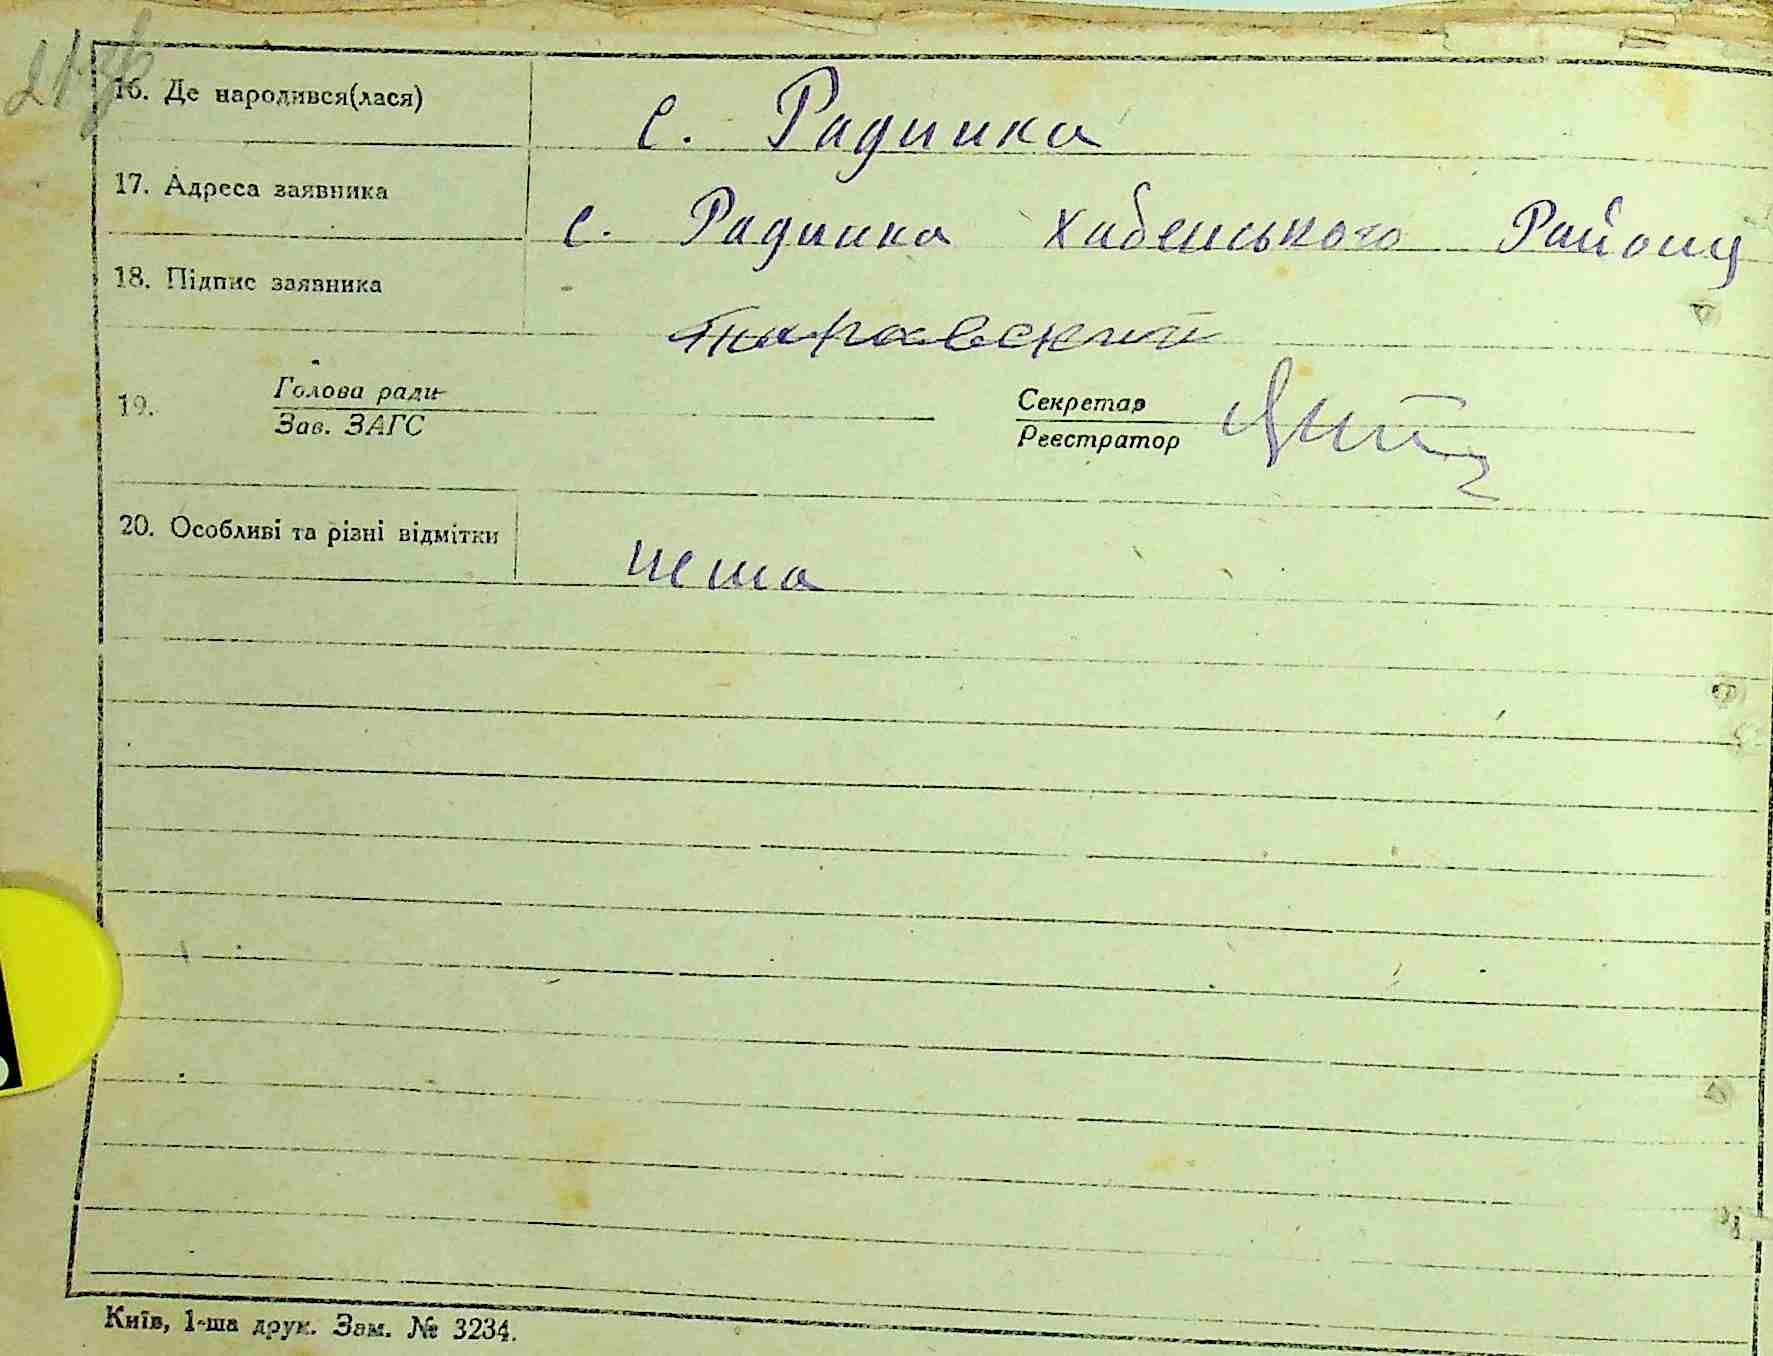 16. Де народився(лася) с. Радинка
17. Адреса заявника с. Радинка Хабенського Району
18. Підпис заявника
19. Голова ради Секретар
Зав. ЗАГС Реєстратор
20. Особливі та різні відмітки нема
Київ, 1-ша друк. Зам. № 3234.